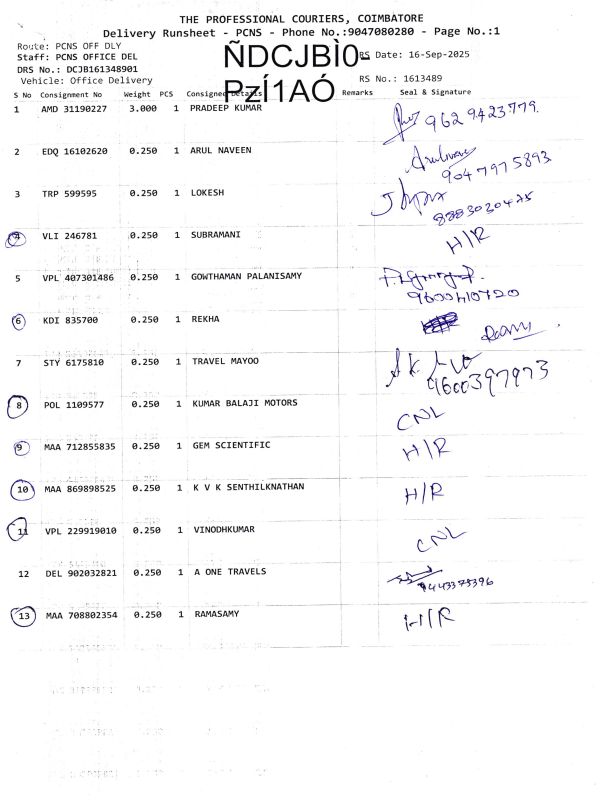 THE PROFESSIONAL COURIERS, COIMBATORE
Delivery Runsheet - PCNS - Phone No.:9047080280 - Page No.:1
Route: PCNS OFF DLY
Staff: PCNS OFFICE DEL
ÑDCJBÌ0-
RS Date: 16-Sep-2025
DRS No.: DCJB161348901
Vehicle: Office Delivery
PzÍ1AÓ
RS No.: 1613489
S No Consignment No Weight PCS Consignee Details Remarks Seal & Signature
1 AMD 31190227 3.000 1 PRADEEP KUMAR 9629423779.
2 EDQ 16102620 0.250 1 ARUL NAVEEN Arulnaveen 9047975893
3 TRP 599595 0.250 1 LOKESH 8883030425
4 VLI 246781 0.250 1 SUBRAMANI H/R
5 VPL 407301486 0.250 1 GOWTHAMAN PALANISAMY 9600410720
6 KDI 835700 0.250 1 REKHA
7 STY 6175810 0.250 1 TRAVEL MAYOO 9600397973
8 POL 1109577 0.250 1 KUMAR BALAJI MOTORS CNL
9 MAA 712855835 0.250 1 GEM SCIENTIFIC H/R
10 MAA 869898525 0.250 1 K V K SENTHILKNATHAN H/R
11 VPL 229919010 0.250 1 VINODHKUMAR CNL
12 DEL 902032821 0.250 1 A ONE TRAVELS 9443375396
13 MAA 708802354 0.250 1 RAMASAMY H/R